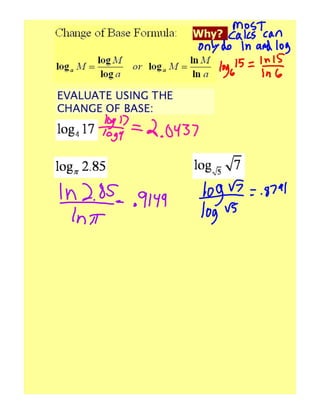 Change of Base Formula: Why? most calcs can only do ln and log
logₐ M = log M / log a or logₐ M = ln M / ln a log₆ 15 = ln 15 / ln 6
EVALUATE USING THE
CHANGE OF BASE:
log₄ 17 log 17 / log 4 = 2.0437
log_π 2.85 log_√5 √7
ln 2.85 / ln π = .9149 log √7 / log √5 = .8791